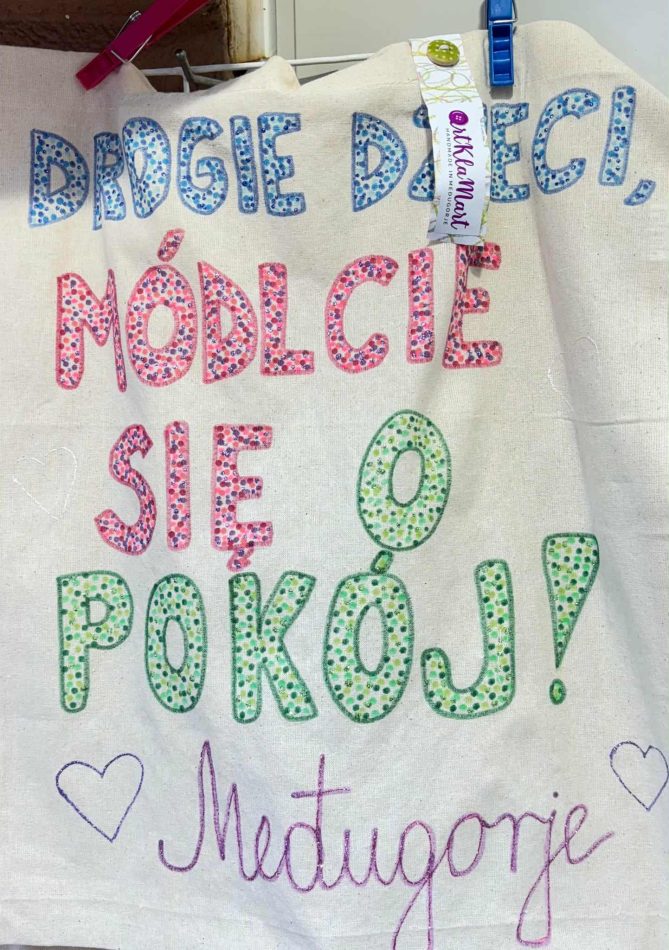 DROGIE DZIECI,
MÓDLCIE
SIĘ O
POKÓJ!
Međugorje
artKlaMart
HANDMADE IN MEĐUGORJE